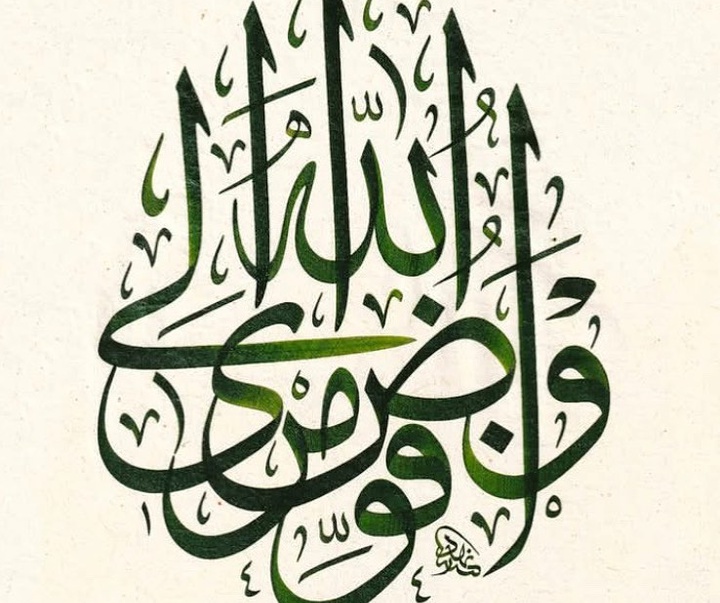 وأفوض أمري إلى الله